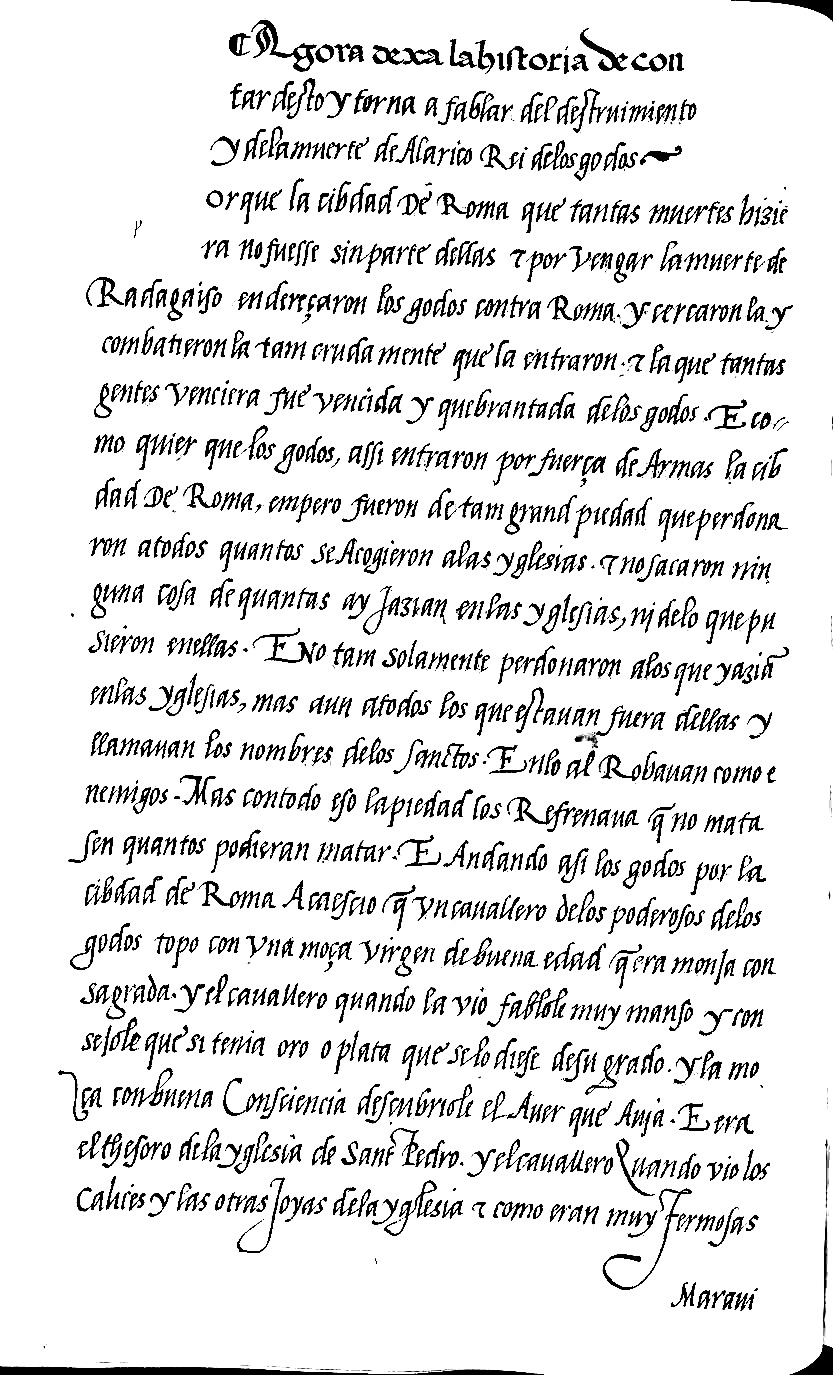 ¶ Agora dexa la historia de con
tar desto y torna a fablar del destruimiento
y dela muerte de Alarico Rei delos godos
p orque la cibdad De Roma que tantas muertes hizie
ra no fuesse sin parte dellas τ por vengar la muerte de
Radagaiso endereçaron los godos contra Roma. y cercaron la y
combatieron la tam cruda mente que la entraron. τ la que tantas
gentes venciera fue vencida y quebrantada delos godos. E co
mo quier que los godos, assi entraron por fuerça de Armas la cib
dad De Roma, empero fueron de tam grand piedad que perdona
ron atodos quantos se Acogieron alas yglesias. τ no sacaron nin
guna cosa de quantas ay Jazian en las yglesias, nj delo que pu
sieron enellas. E No tam solamente perdonaron alos que yaziā
enlas yglesias, mas aun atodos los que estauan fuera dellas y
llamauan los nombres delos sanctos. Enlo al Robauan como e
nemigos. Mas contodo eso la piedad los Refrenaua q̄ no mata
sen quantos podieran matar. E Andando asi los godos por la
cibdad de Roma Acaescio q̄ vn cauallero delos poderosos delos
godos topo con vna moça virgen de buena edad q̄ era monja con
sagrada. y el cauallero quando la vio fablole muy manso y con
sejole que si tenia oro o plata que se lo diese desu grado. y la mo
ça con buena Consciencia descubriole el Auer que Auja. E era
el thesoro dela yglesia de Sant Pedro. y el cauallero Quando vio los
Calices y las otras Joyas dela yglesia τ como eran muy fermosas
Maraui